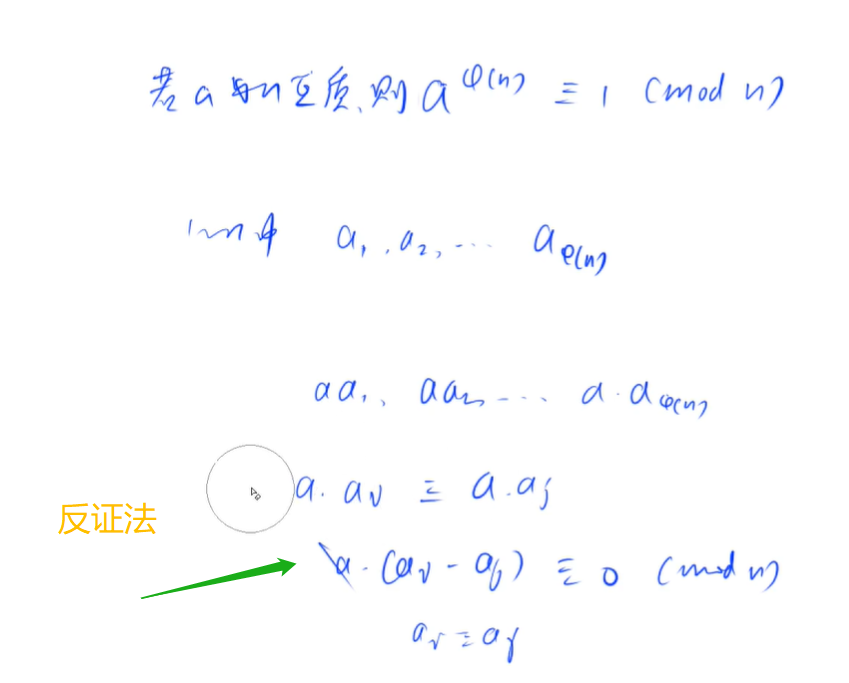 若a与n互质,则a^φ(n) ≡ 1 (mod n)
1~n中 a₁, a₂, ... a_φ(n)
aa₁, aa₂ ... a·a_φ(n)
a·aᵢ ≡ a·aⱼ
反证法
a·(aᵢ - aⱼ) ≡ 0 (mod n)
aᵢ ≡ aⱼ